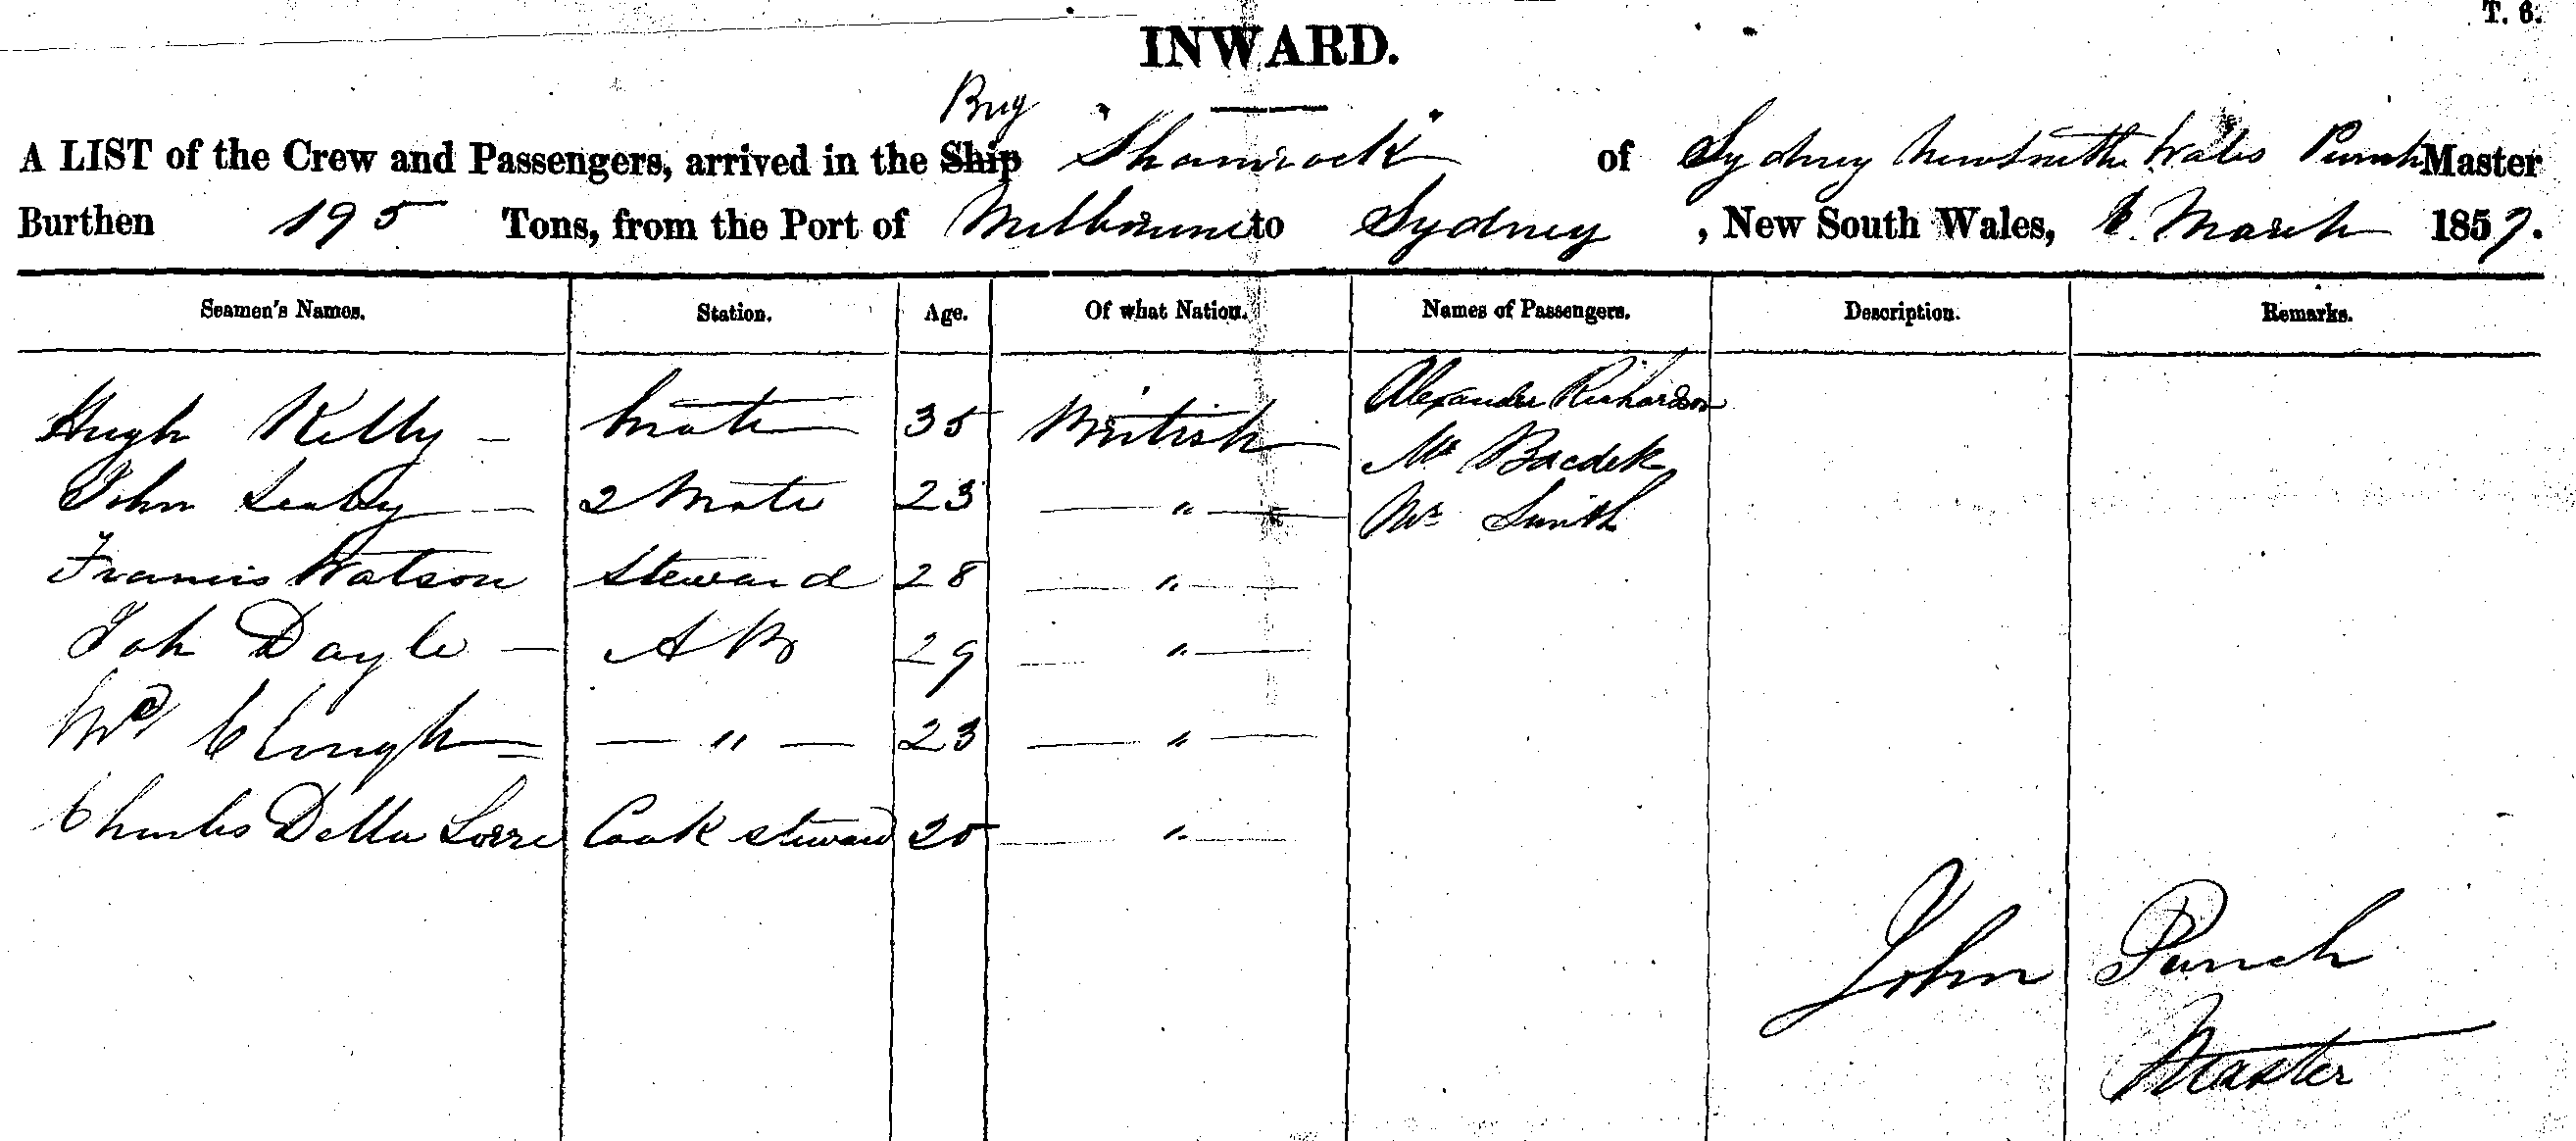 T. 6.
INWARD.
Brig
A LIST of the Crew and Passengers, arrived in the Ship "Shamrock" of Sydney New South Wales Punch Master
Burthen 195 Tons, from the Port of Melbourne to Sydney, New South Wales, March 1857.
Seamen's Names. Station. Age. Of what Nation. Names of Passengers. Description. Remarks.
Hugh Kelly - Mate 35 British Alexander Richardson
Mr
John 2 Mate 23 " Mr Smith
Francis Watson Steward 28 "
Joh Dayle - A B 29 "
Clough - " - 23 "
Charles Della Cook steward 25 "
John Punch
Master